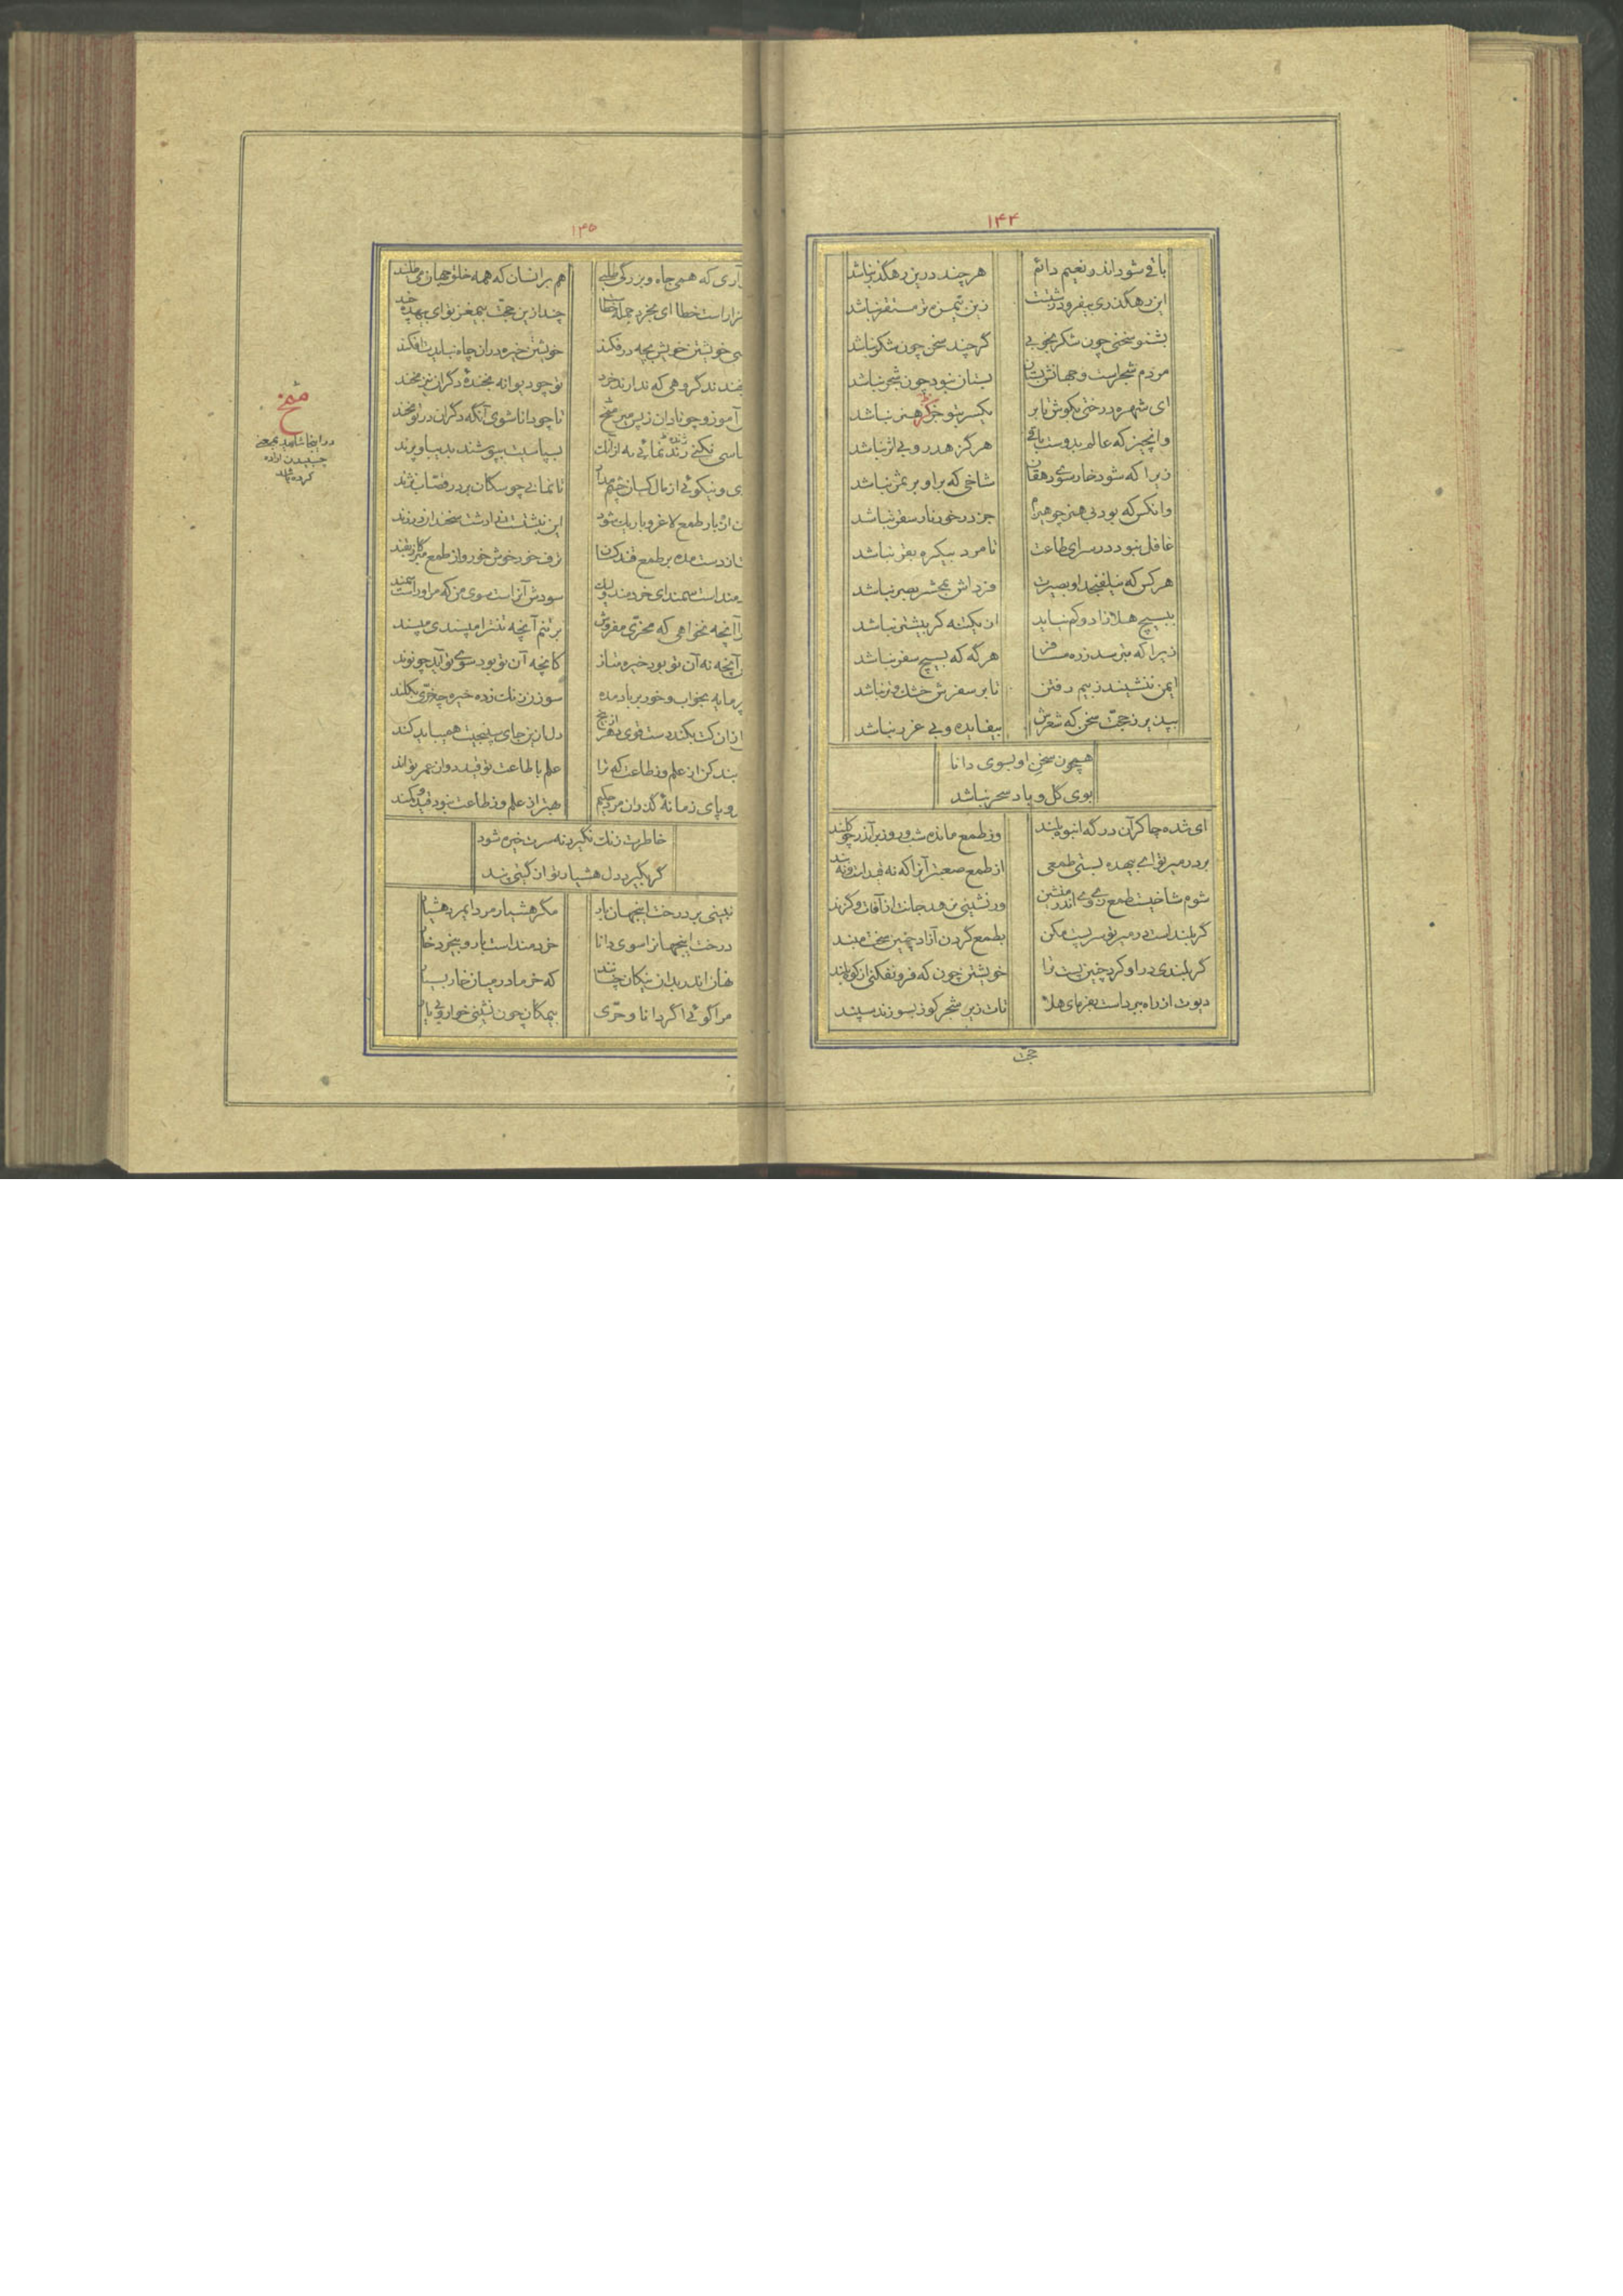 ۱۴۴
باقی شود اندر نعیم دائم
هر چند درین رهگذر نباشد
این رهگذری بیفرو درشتست
زین تیره تر مستقر نباشد
بشنو سخنی چون شکر بخوبی
گرچند سخن چون شکر نباشد
مردم شجر است و جهانش بستان
بستان نبود چون شجر نباشد
ای شهره درختی بکوش تا بر
یکسر بتو جز کز هنر نباشد
وانچیز که عالم بدوست باقی
هرگز هدر و بی اثر نباشد
زیرا که شود خار سوی دهقان
شاخی که بر او بر ثمر نباشد
وانکس که بود بی هنر چو هیزم
جز در خور نار سقر نباشد
غافل نبود در سرای طاعت
تا مرد بیکره بقر نباشد
هر کس که نیلفنجد او بصیرت
فرداش بمحشر بصر نباشد
ببسیچ هلا زاد و کم نیاید
از یکتنه گر بیشتر نباشد
زیرا که بترسد ز ره مسافر
هرگه که بسیچ سفر نباشد
ایمن ننشیند ز بیم رفتن
تا بر سفرش خشک و تر نباشد
بپذیر ز حجّت سخن که شعرش
بیفایده و بی غرر نباشد
همچون سخن او بسوی دانا
بوی گل و باد سحر نباشد
ای شده چاکر آن درگه انبوه بلند
وز طمع مانده شب و روز بر آن در چو کلند
بر در میر تو ای بیهده بستی طمعی
از طمع صعبتر آنرا که نه قید است و نه بند
شوم شاخیست طمع زی وی اندر منشین
ور نشینی نرهد جانت از آفات و گزند
گر بلند است در میر تو سر پست مکن
بطمع گردن آزاد چنین سخت مبند
گر بلندی در او کرد چنین پست ترا
خویشتن چون که فرو نفکنی از کوه بلند
دیوت از راه ببرداست بفرمای هلا
تات زیر شجر گوز بسوزند سپند
حجّت
۱۴۵
آری که همی جاه و بزرگی طلبی
هم بر انسان که همه خلق جهان می طلبند
است خطا ای بخرد جمله خطا
چند ازین حجّت بیمغز تو ای بیهده چند
خویشتن خویش بچه در فکند
خویشتن خیره در ان چاه نبایدت افکند
گروهی که ندارند خرد
تو چو دیوانه بخندهٔ دگران نیز مخند
آموز و چو نادان ز پس میر مخ
تا چو دانا شوی آنگه دگران در تو مخند
نکنی ژنده نمائی به از انک
بسپاسیت بپوشند بدیبا و پرند
و نیکوئی از مال کسان چشم مدار
تا نمانی چو سگان بر در قصّاب نژند
بار طمع لاغر و باریک شود
این نبشتست در ادشت سخندان در زند
دست مده بر طمع قند کسان
ترف خود خوش خور و از طمع مبر گاز بقند
است سمند ای خردمند ولیک
سودش آنراست سوی من که مر او راست سمند
آنچه نخواهی که بخرّی مفروش
بر تنم آنچه تنت را مپسندی مپسند
آنچه نه آن تو بود خیره متاز
کانچه آن تو بود سوی تو آید چو نوند
مایه بخواب و خور بر باد مده
سوزن زنگ زده خیره چه خرّی بکلند
از ان کت بکند دست قوی دهر از بیخ
دل ازین جای سپنجیت همیباید کند
بند کن از علم وز طاعت که ترا
علم با طاعت تو قید دوان عمر تواند
و پای زمانهٔ گذران مرد حکیم
بهتر از علم وز طاعت نبود قید و کمند
خاطرت زنگ نگیرد نه سرت خیره شود
گر بگیرد دل هشیار تو از گیتی پند
نبینی بر درخت اینجهان بار
مگر هشیار مرد ایمرد هشیار
درخت اینجهانرا سوی دانا
خردمند است بار و بیخرد خار
نهان اندر بدان نیکان چنانند
که خرما در میان خار بسیار
مرا گوئی اگر دانا و حرّی
بیمگان چون نشینی خوار و بی یار
مخ
در اینجا شاید بمعنی
چسبیدن اراده
کرده شد